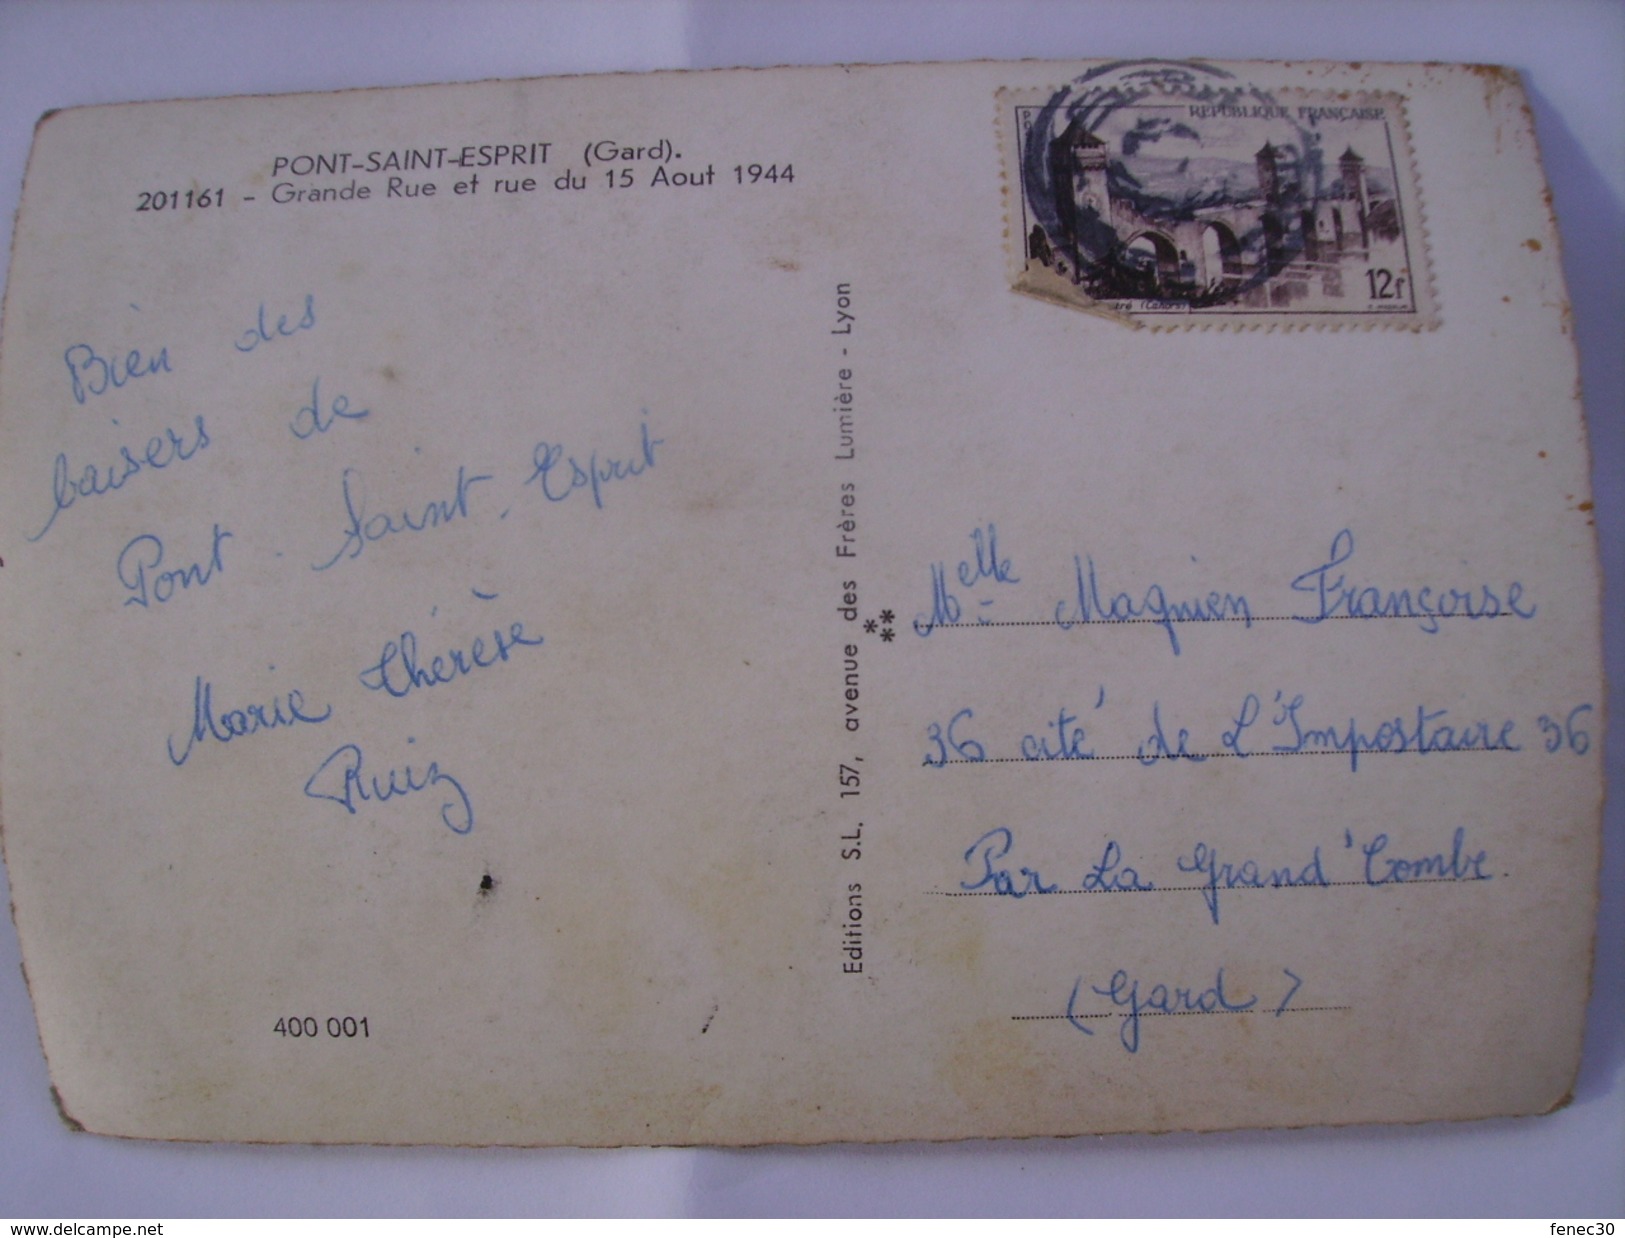 PONT-SAINT-ESPRIT (Gard).
201161 - Grande Rue et rue du 15 Aout 1944
Bien des
baisers de
Pont. Saint. Esprit
Marie Thérèse
Ruiz
400 001
Editions S.L. 157, avenue des Frères Lumière - Lyon
REPUBLIQUE FRANÇAISE
12f
Melle Magnien Françoise
36 cité de L'Impostaire 36
Par La Grand'Combe
(Gard)
www.delcampe.net
fenec30